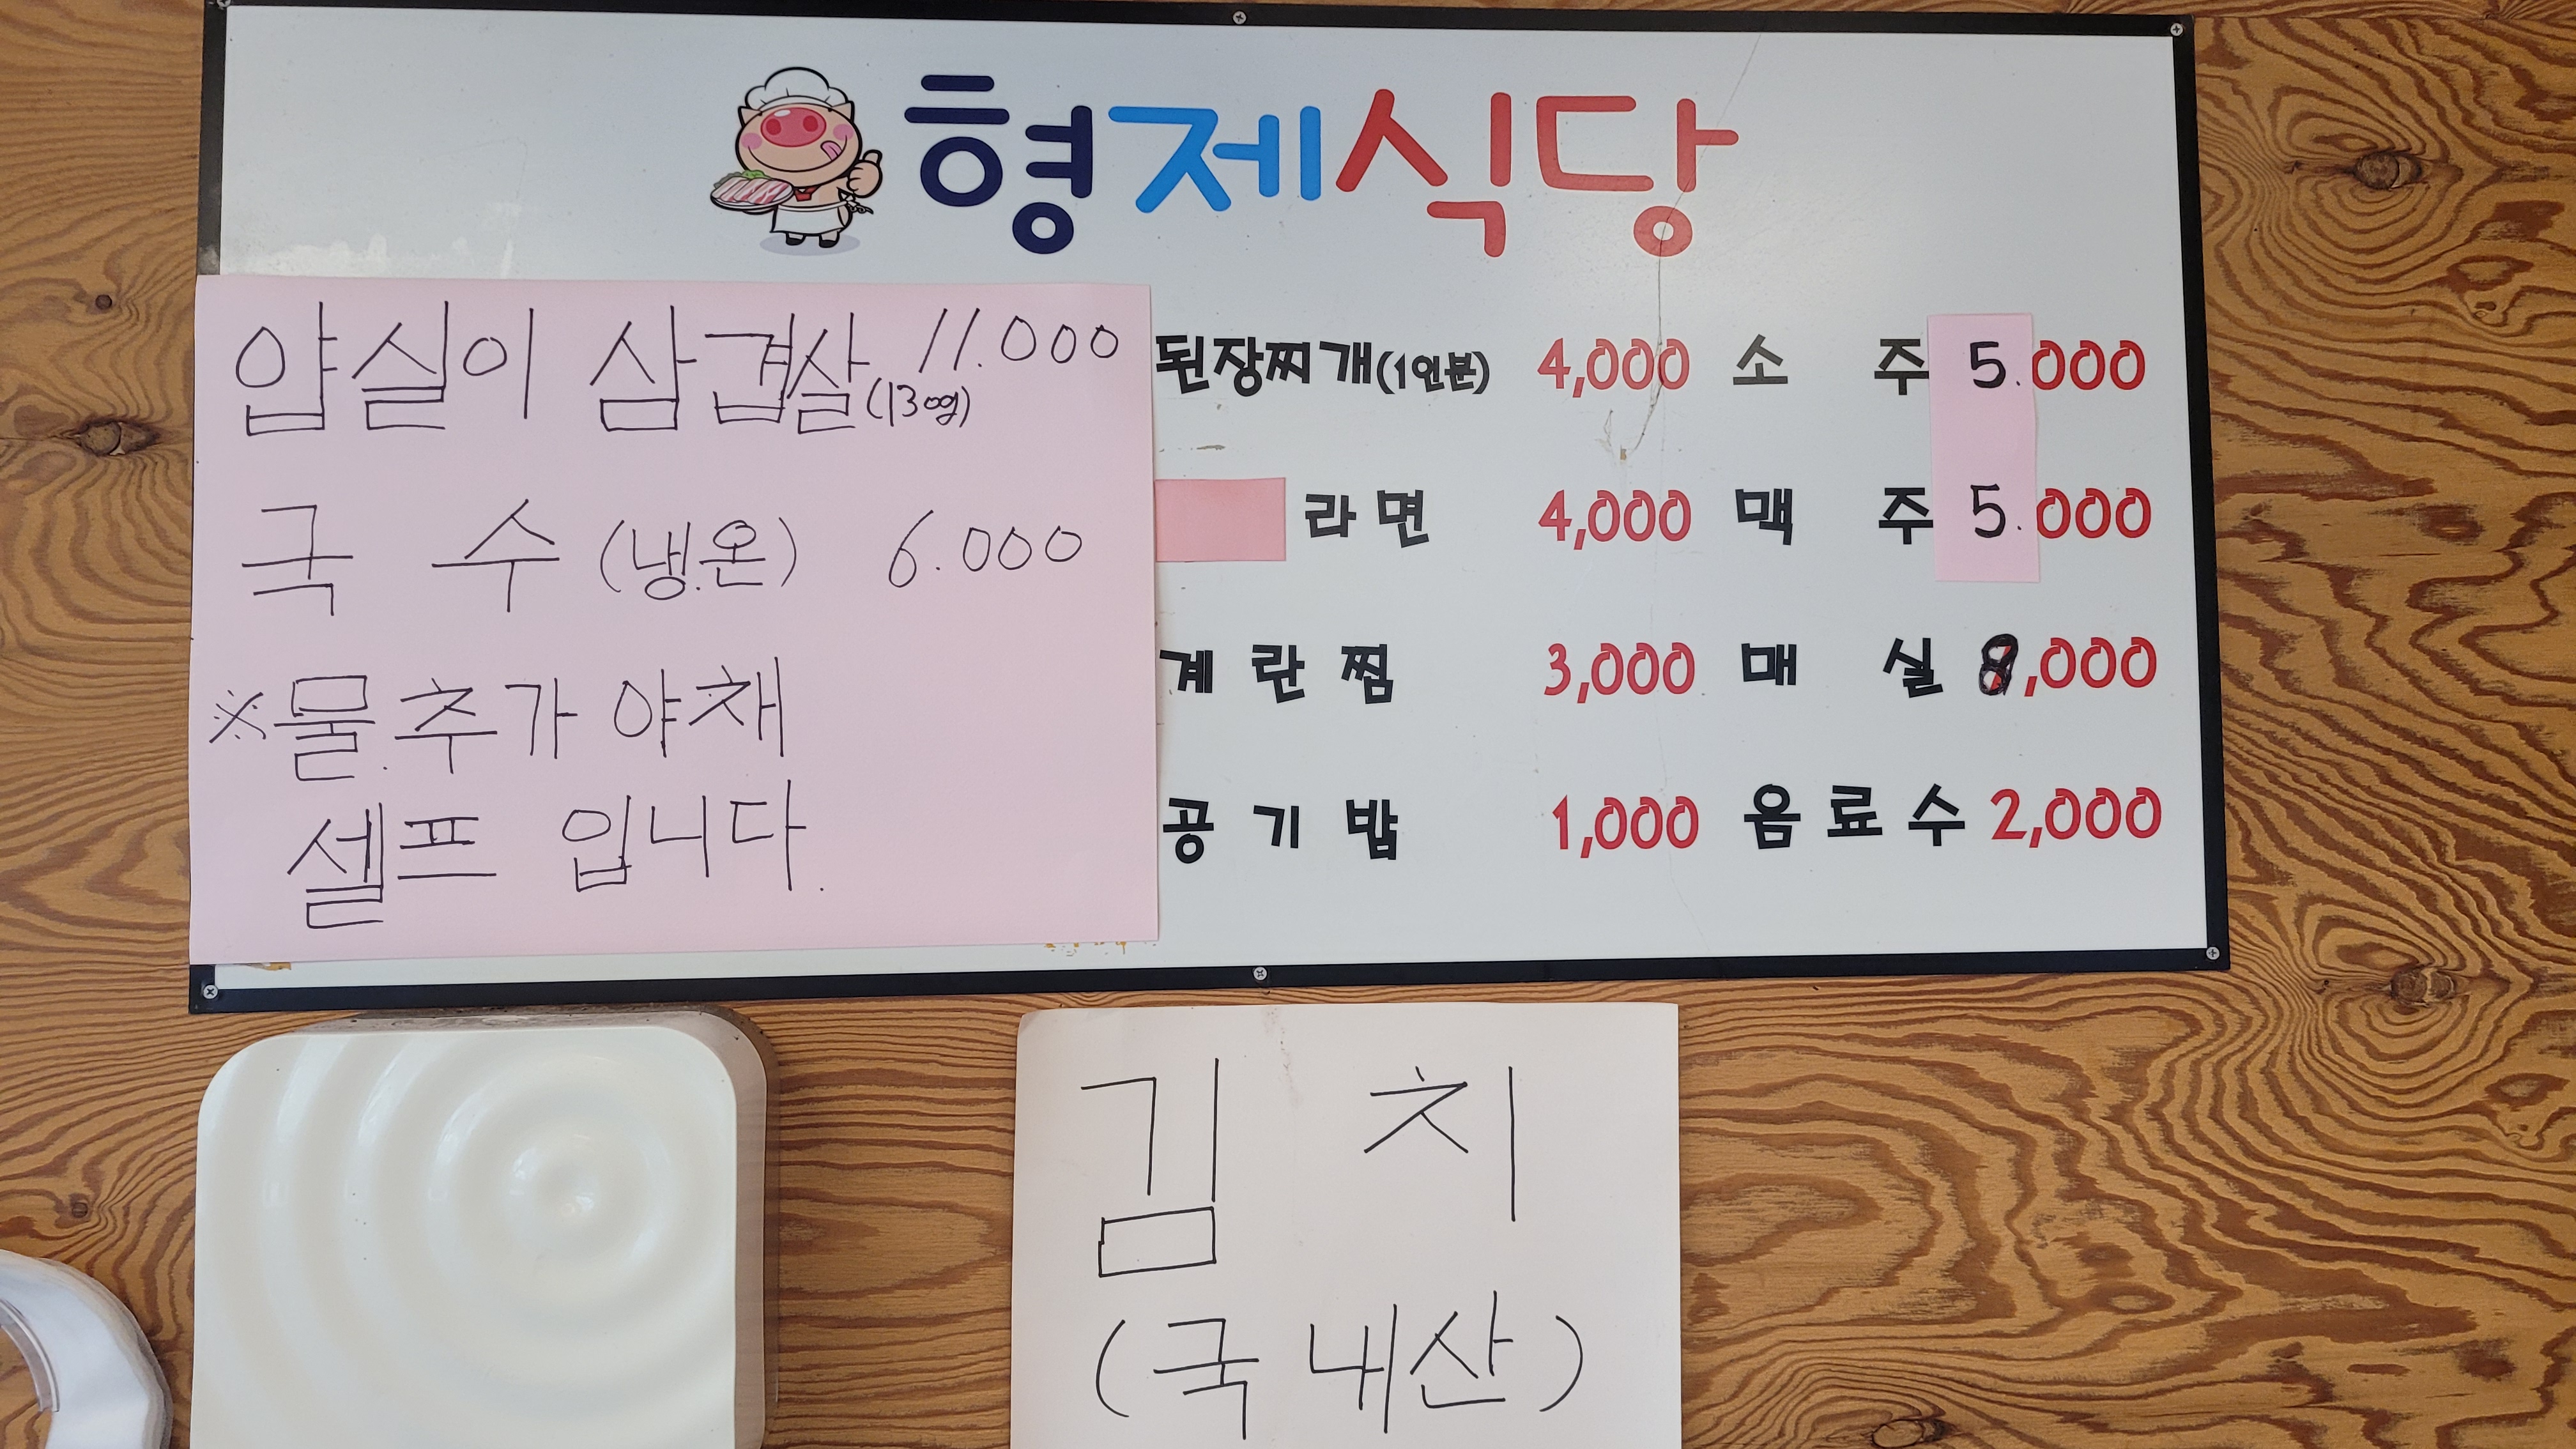 형제식당
얍실이 삼겹살 11.000
(130g)
국 수 (냉.온) 6.000
※물.추가 야채
셀프 입니다.
된장찌개(1인분) 4,000 소 주 5.000
라면 4,000 맥 주 5.000
계란찜 3,000 매 실 8,000
공기밥 1,000 음료수 2,000
김 치
(국내산)